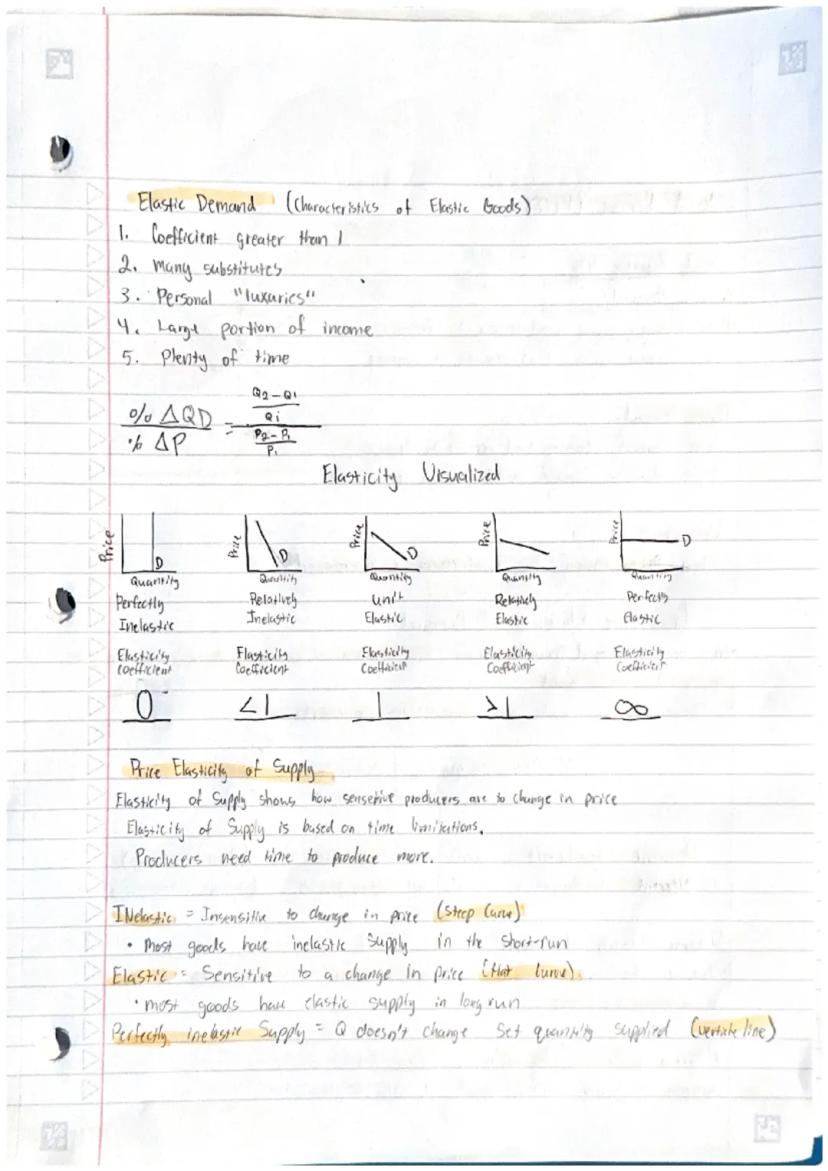 Elastic Demand (Characteristics of Elastic Goods)
1. Coefficient greater than 1
2. Many substitutes
3. Personal "luxuries"
4. Large portion of income
5. Plenty of time
% ΔQD / % ΔP = (Q2-Q1 / Q1) / (P2-P1 / P1)
Elasticity Visualized
Price Price Price Price Price
D D D D
Quantity Quantity Quantity Quantity Quantity
Perfectly Relatively Unit Relatively Perfectly
Inelastic Inelastic Elastic Elastic Elastic
Elasticity Elasticity Elasticity Elasticity Elasticity
Coefficient Coefficient Coefficient Coefficient Coefficient
0 <1 1 >1 ∞
Price Elasticity of Supply
Elasticity of Supply shows how sensetive producers are to change in price
Elasticity of Supply is based on time limitations.
Producers need time to produce more.
INelastic = Insensitive to change in price (Steep Curve)
• Most goods have inelastic supply in the short-run
Elastic = Sensitive to a change in price (flat curve).
• most goods have elastic supply in long run
Perfectly inelastic Supply = Q doesn't change Set quantity supplied (line)